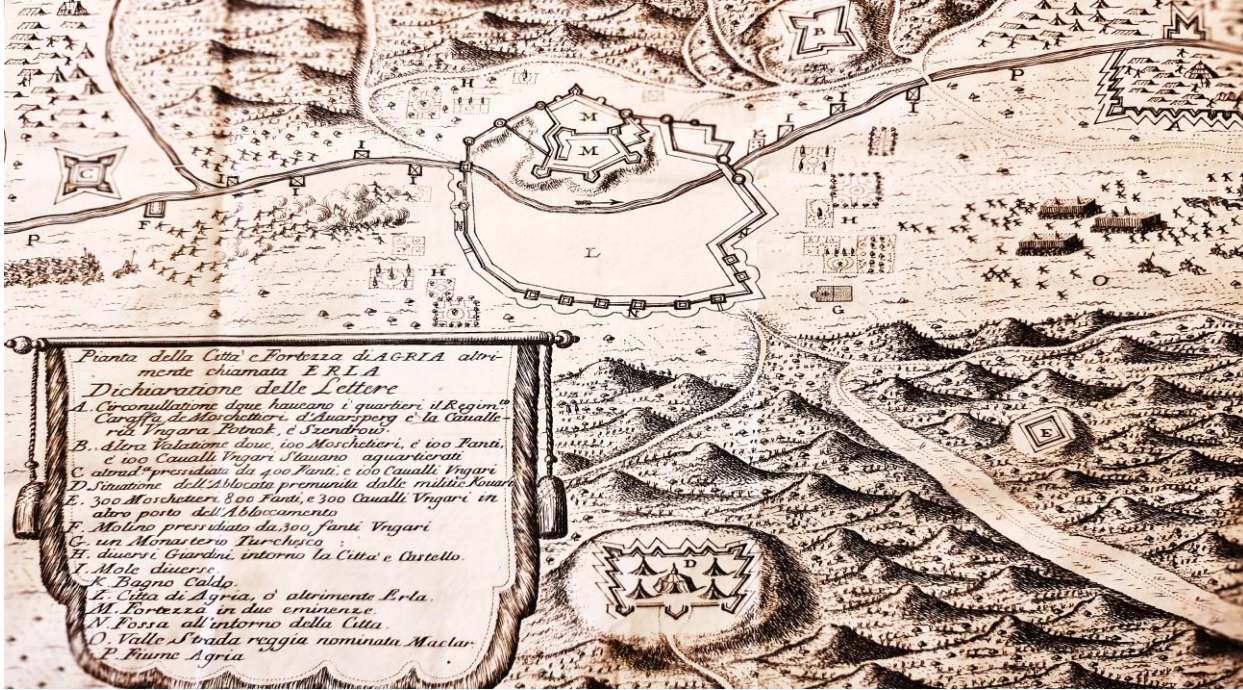 Pianta della Citta e Fortezza di AGRIA altri-
mente chiamata ERLA
Dichiaratione delle Lettere
A. Circonuallatione doue haueano i quartieri il Regim.to
Caraffa, de Moschettieri d'Auarsperg e la Caualle-
ria Vngara Potnok, è Szendrow.
B. altra Valatione doue, 100 Moschetieri, e 100 Fanti,
e 100 Caualli Vngari Stauano aquartierati
C pressidiata da 400 Fanti, e 100 Caualli Vngari
D. Situatione dell'Ablocata premunita dalle militie Kouari
E. 300 Moschetieri 800 Fanti, e 300 Caualli Vngari in
altro posto dell'Abloccamento
F. Molino pressidiato da 300, fanti Vngari
G. un Monasterio Turchesco
H. diuersi Giardini intorno la Citta e Castello.
I. Mole diuerse.
K. Bagno Caldo.
L. Citta di Agria, ò altrimente Erla.
M. Fortezza in due eminenze.
N. Fossa all'intorno della Citta.
O. Valle Strada reggia nominata Maclar
P. Fiume Agria
B
M
P
A
H
I
I
K
M
M
I
I
C
I
I
F
P
N
L
N
H
H
G
O
N
E
D